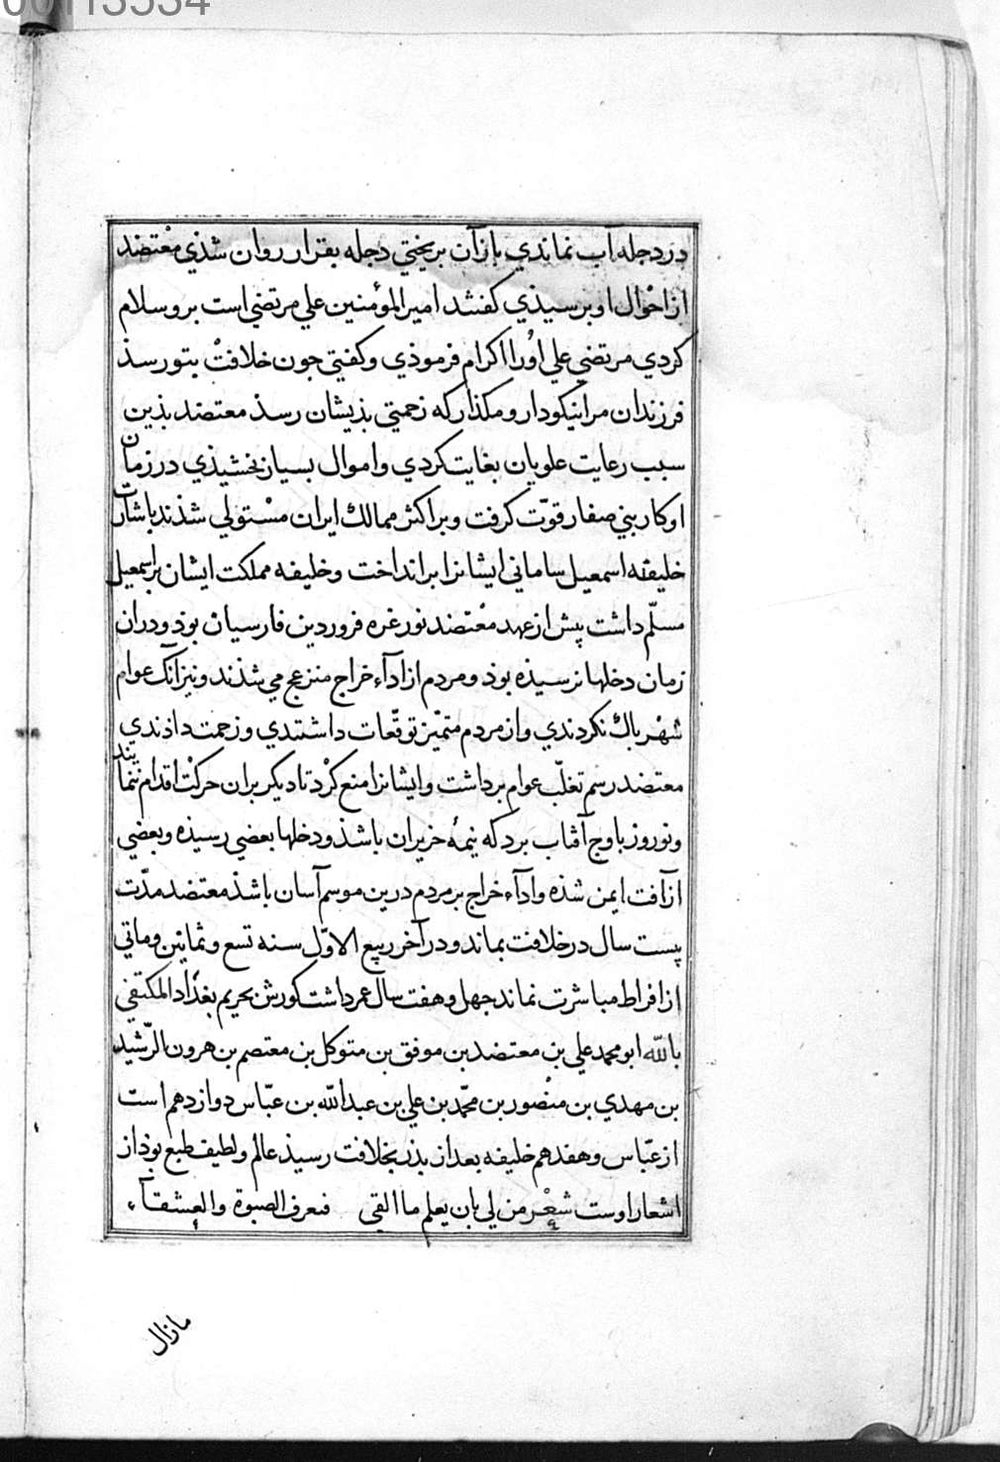 00113534
در دجله آب نماندي بازآن بريختي دجله بقرار روان شدي معتضد
از احوال او برسيذي كفتند امير المؤمنين علي مرتضي است برو سلام
كردي مرتضي علي اورا اكرام فرموذي وكفتي جون خلافت بتو رسذ
فرزندان مرا نيكو دار ومكذار كه زحمتي بذيشان رسذ معتضد بذين
سبب رعايت علويان بغايت كردي واموال بسيار بخشيذي در زمان
او كار بني صفار قوّت كرفت وبر اكثر ممالك ايران مستولي شذند باشارت
خليفه اسمعيل ساماني ايشانرا برانداخت وخليفه مملكت ايشان بر اسمعيل
مسلّم داشت پيش از عهد معتضد نوروز غره فروردين فارسيان بوذ ودران
زمان دخلها نرسيذه بوذ ومردم از ادآء خراج منزعج مي شذند ونيز آنك عوام
شهر باك نكردندي واز مردم متميّز توقّعات داشتندي وزحمت داذندي
معتضد رسم تغلّب عوام برداشت وايشانرا منع كرد تا ديكر بران حركت اقدام ننمايند
ونوروز با اوج آفتاب برد كه نيمۀ حزيران باشذ ودخلها بعضي رسيذه وبعضي
از آفت ايمن شذه وادآء خراج بر مردم درين موسم آسان باشذ معتضد مدّت
بيست سال در خلافت بماند ودر آخر ربيع الاوّل سنه تسع وثمانين وماتي
از افراط مباشرت نماند جهل وهفت سال عمر داشت كورش بحريم بغداد المكتفي
بالله ابو محمد علي بن معتضد بن موفق بن متوكل بن معتصم بن هرون الرّشيد
بن مهدي بن منصور بن محمّد بن علي بن عبد الله بن عبّاس دوازدهم است
از عبّاس وهفدهم خليفه بعد از بذر بخلافت رسيذ عالم ولطيف طبع بوذ از
اشعار اوست شعر من لي بان يعلم ما القي فعرف الصبوة والعشقآء
مازال